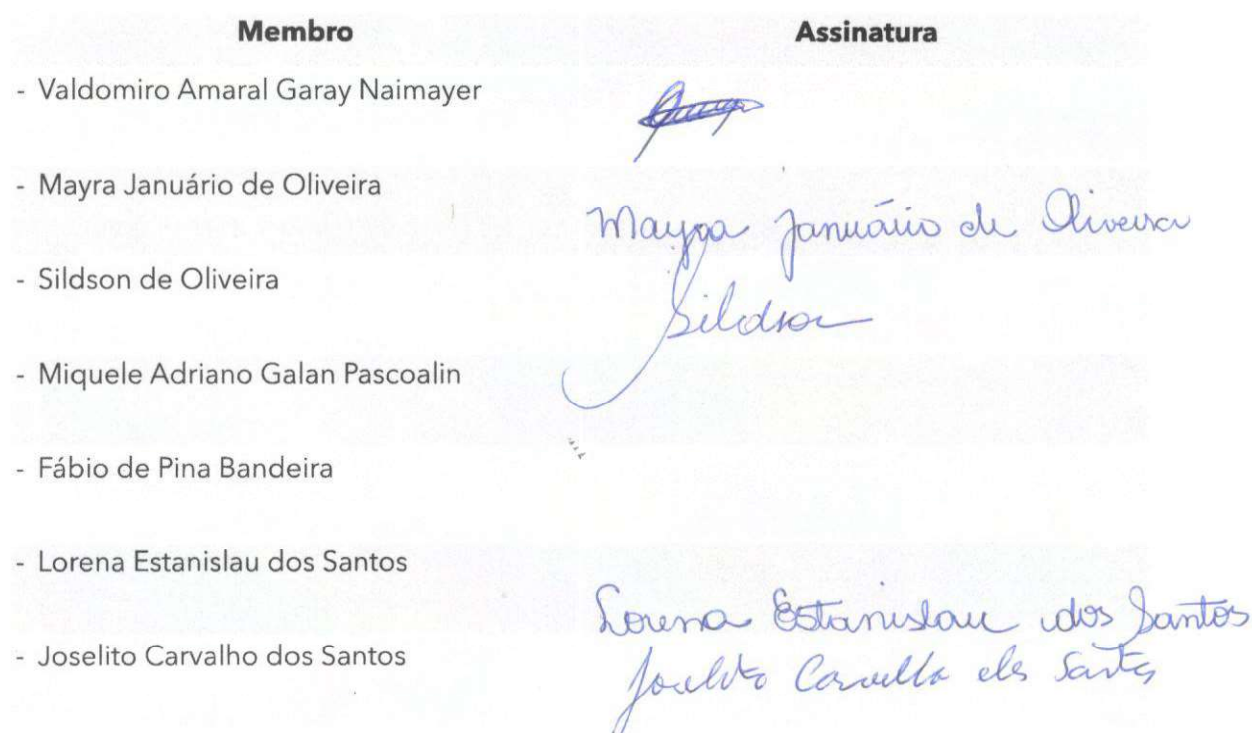 Membro Assinatura
- Valdomiro Amaral Garay Naimayer
- Mayra Januário de Oliveira
Mayra Januário de Oliveira
- Sildson de Oliveira
Sildson
- Miquele Adriano Galan Pascoalin
- Fábio de Pina Bandeira
- Lorena Estanislau dos Santos
Lorena Estanislau dos Santos
- Joselito Carvalho dos Santos
Joselito Carvalho dos Santos